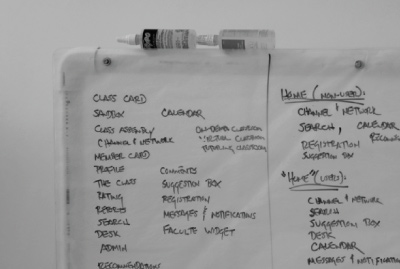 CLASS CARD
SANDBOX
CLASS ASSEMBLY
CHANNEL & NETWORK
MEMBER CARD
PROFILE
THE CLASS
RATING
SEARCH
DESK
ADMIN
RECOMMENDATIONS
CALENDAR
ON-DEMAND CLASSROOM
VIRTUAL CLASSROOM
CLASSROOM
COMMENTS
SUGGESTION BOX
REGISTRATION
MESSAGES & NOTIFICATIONS
FACULTE WIDGET
HOME (NON-USER):
CHANNEL & NETWORK
SEARCH, CALENDAR
REGISTRATION
SUGGESTION BOX
"HOME" (USER):
CHANNEL & NETWORK
SEARCH
SUGGESTION BOX
DESK
CALENDAR
MESSAGES & NOTIFICATION